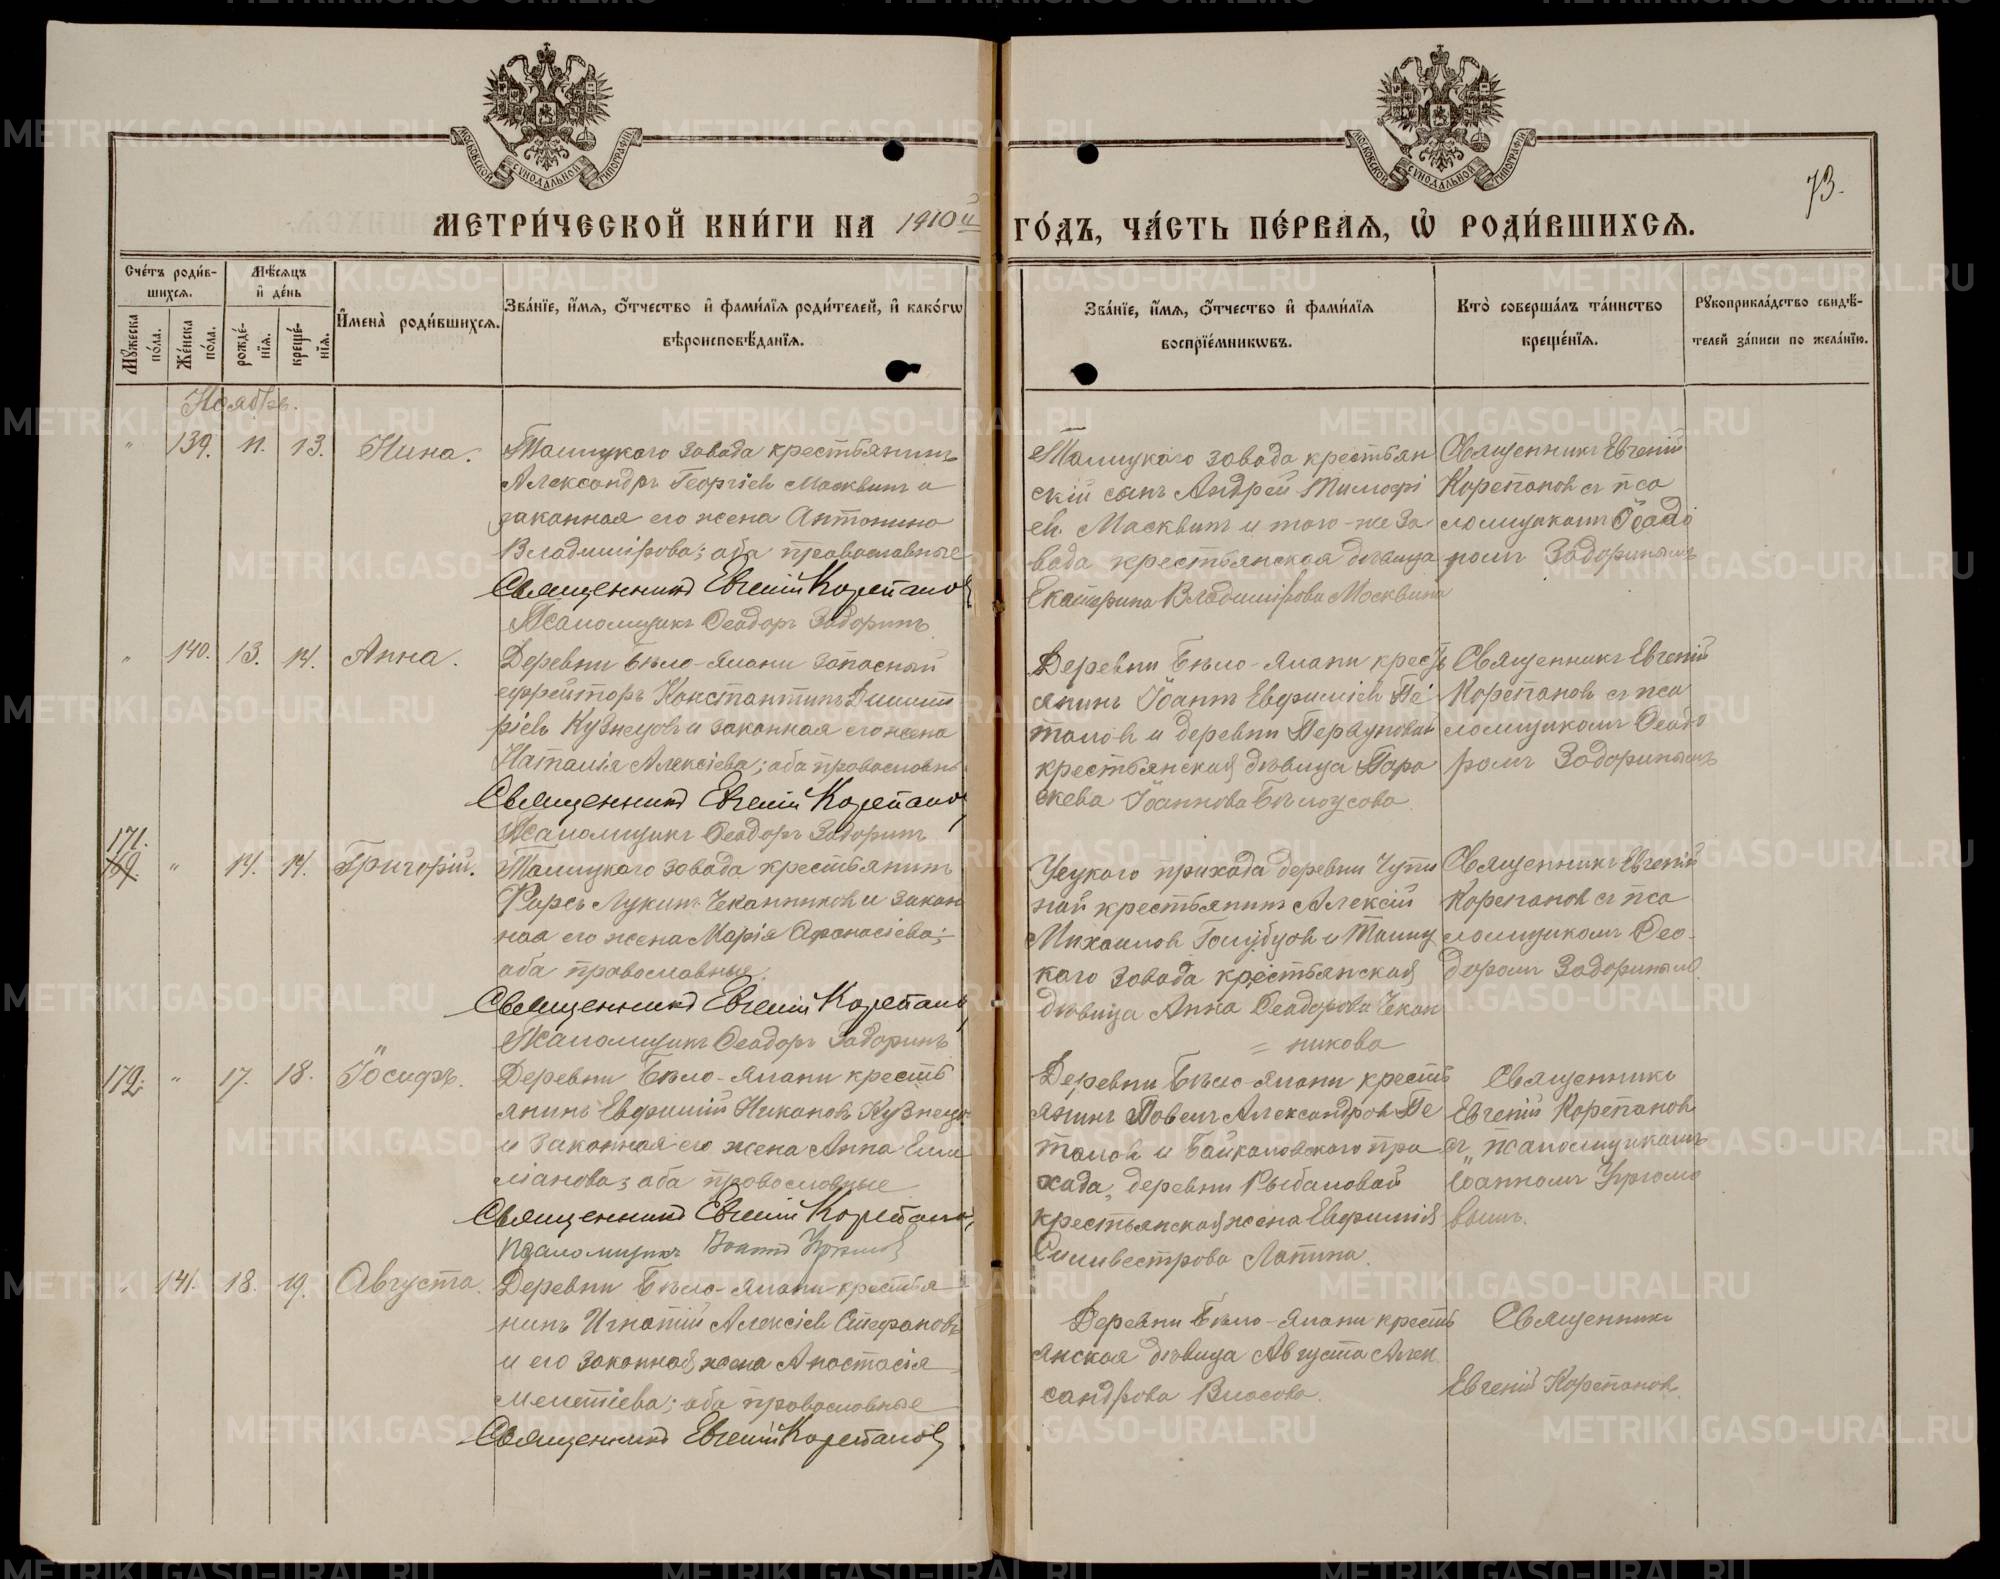 МОСКОВСКОЙ СѴНОДАЛЬНОЙ ТИПОГРАФІИ
МОСКОВСКОЙ СѴНОДАЛЬНОЙ ТИПОГРАФІИ
73.
МЕТРИ́ЧЕСКОЙ КНИ́ГИ НА 1910й ГО́ДЪ, ЧА́СТЬ ПЕ́РВАѦ, Ѽ РОДИ́ВШИХСѦ.
Сче́тъ роди́в-
шихсѧ.
Мꙋжеска по́ла.
Же́нска по́ла.
Мѣ́сѧцъ
и҆ де́нь
рожде́-
нїѧ.
креще́-
нїѧ.
И҆мена̀ роди́вшихсѧ.
Зва́нїе, и҆́мѧ, ѻ҆́тчество и҆ фами́лїѧ роди́телей, и҆ како́гѡ
вѣроисповѣ́данїѧ.
Зва́нїе, и҆́мѧ, ѻ҆́тчество и҆ фами́лїѧ
воспрїе́мникѡвъ.
Кто̀ соверша́лъ та́инство
креще́нїѧ.
Рꙋкоприкла́дство свидѣ́-
телей за́писи по жела́нїю.
Ноябрь.
" 139. 11. 13. Нина.
Талицкого завода крестьянинъ
Александръ Георгіевъ Москвинъ и
законная его жена Антонина
Владимірова; оба православные
Священникъ Евгеній Корепановъ
Псаломщикъ Ѳеодоръ Задоринъ
Талицкого завода крестьян
скій сынъ Андрей Тимофе
ев. Москвинъ и того-же за
вода крестьянская дѣвица
Екатерина Владимірова Москвина
Священникъ Евгеній
Корепановъ съ пса
ломщикомъ Ѳеодо
ромъ Задоринымъ
" 140. 13. 14. Анна.
Деревни Бѣло-Елани запасный
ефрейторъ Константинъ Димит
ріевъ Кузнецовъ и законная его жена
Наталія Алексіева; оба православн.
Священникъ Евгеній Корепановъ
Псаломщикъ Ѳеодоръ Задоринъ
Деревни Бѣло-Елани кресть
янинъ Іоаннъ Евфиміевъ Пе
таловъ и деревни Перуновой
крестьянская дѣвица Пара
скева Іоаннова Бѣлоусова.
Священникъ Евгеній
Корепановъ съ пса
ломщикомъ Ѳеодо
ромъ Задоринымъ
171.
169. " 14. 14. Григорій.
Талицкого завода крестьянинъ
Лукинъ Чеканниковъ и закон
ная его жена Марія Афонасіева;
оба православные.
Священникъ Евгеній Корепановъ
Псаломщикъ Ѳеодоръ Задоринъ
прихода деревни
крестьянинъ Алексій
Михаиловъ Голубцовъ и Талиц
кого завода крестьянская
дѣвица Анна Ѳеодорова Чекан
= никова
Священникъ Евгеній
Корепановъ съ пса
ломщикомъ Ѳео-
доромъ Задоринымъ.
172. " 17. 18. Іосифъ.
Деревни Бѣло-Елани кресть
янинъ Евфимій Никоновъ Кузнецовъ
и законная его жена Анна Еми
ліанова; оба православные
Священникъ Евгеній Корепановъ
Псаломщикъ Іоаннъ
Деревни Бѣло-Елани кресть
янинъ Павелъ Александровъ Пе
таловъ и Байкаловского при
хода, деревни Рыбаловой
крестьянская жена Евфимія
Сильвестрова Лапина.
Священникъ
Евгеній Корепановъ
съ псаломщикомъ
Іоанномъ
" 141. 18. 19. Августа.
Деревни Бѣло-Елани крестья
нинъ Игнатій Алексіевъ Стефановъ
и его законная жена Анастасія
Мелетіева; оба православные
Священникъ Евгеній Корепановъ
Деревни Бѣло-Елани кресть
янская дѣвица Августа Алек
сандрова Власова.
Священникъ
Евгеній Корепановъ.
METRIKI.GASO-URAL.RU